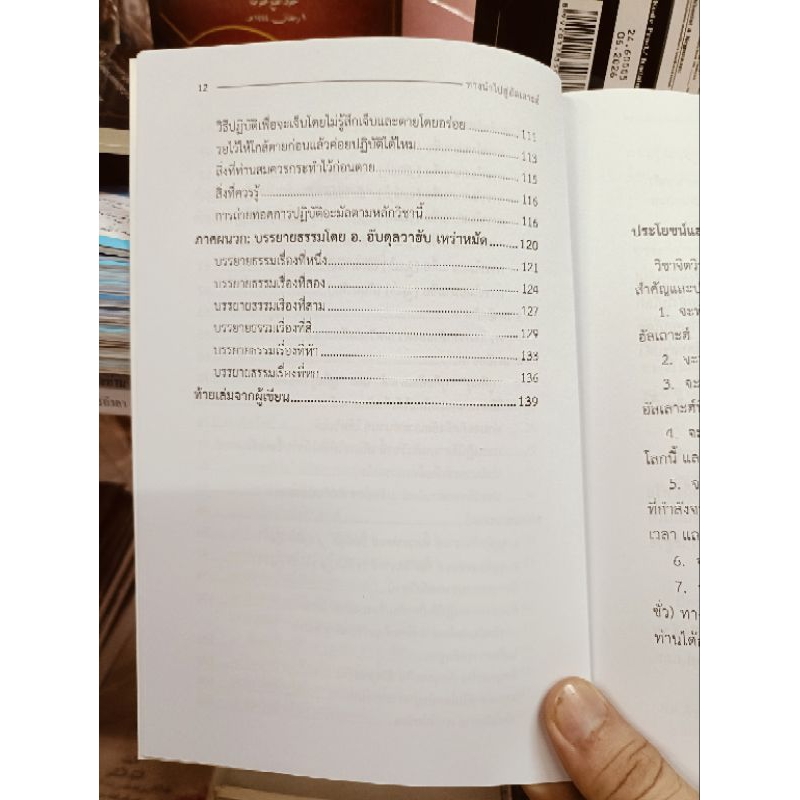 12
ทางนำไปสู่อัลเลาะฮ์
วิธีปฏิบัติเพื่อจะเจ็บโดยไม่รู้สึกเจ็บและตายโดยอร่อย 111
รอไว้ให้ใกล้ตายก่อนแล้วค่อยปฏิบัติได้ไหม 113
สิ่งที่ท่านสมควรกระทำไว้ก่อนตาย 115
สิ่งที่ควรรู้ 116
การถ่ายทอดการปฏิบัติอะมัลตามหลักวิชานี้ 116
ภาคผนวก: บรรยายธรรมโดย อ. อับดุลวาฮับ เหว่าหมัด 120
บรรยายธรรมเรื่องที่หนึ่ง 121
บรรยายธรรมเรื่องที่สอง 124
บรรยายธรรมเรื่องที่สาม 127
บรรยายธรรมเรื่องที่สี่ 129
บรรยายธรรมเรื่องที่ห้า 133
บรรยายธรรมเรื่องที่หก 136
ท้ายเล่มจากผู้เขียน 139
ประโยชน์และ
วิชาจิตวิ
สำคัญและป
1. จะท
อัลเลาะฮ์
2. จะ
3. จะ
อัลเลาะฮ์
4. จะ
โลกนี้ แล
5. จ
ที่กำลังจ
เวลา แล
6. จ
7. จ
ชั่ว) ทา
ท่านได้